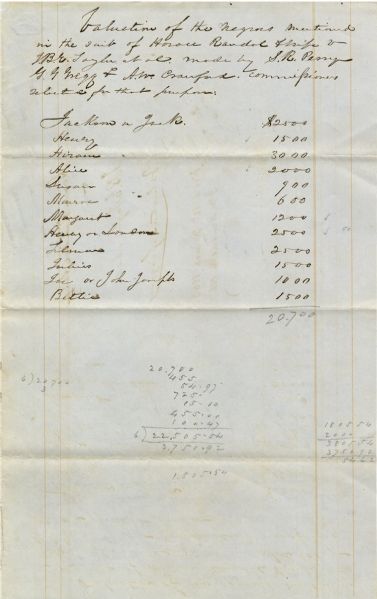 Valuation of the negroes mentioned
in the suit of Horace Randal & wife v
J.B.L. Taylor et al made by S.R. Perry
G.G. Gregg & A.W. Crawford commissioners
selected for that purpose.
Jackson or Jack. $2500
Henry 1500
Hiram 3000
Alice 2000
Susan 900
600
Margaret 1200
Henry or London 2500
2500
Julius 1500
Joe or John Joseph 1000
Bettie 1500
20.700
20.700
455
54.97
725
15.10
455.00
100.47
6) 22,505.54
3,750.92
1,805.54
6) 20,700
3
1805 54
2000
3805 54
3750 92
54 62